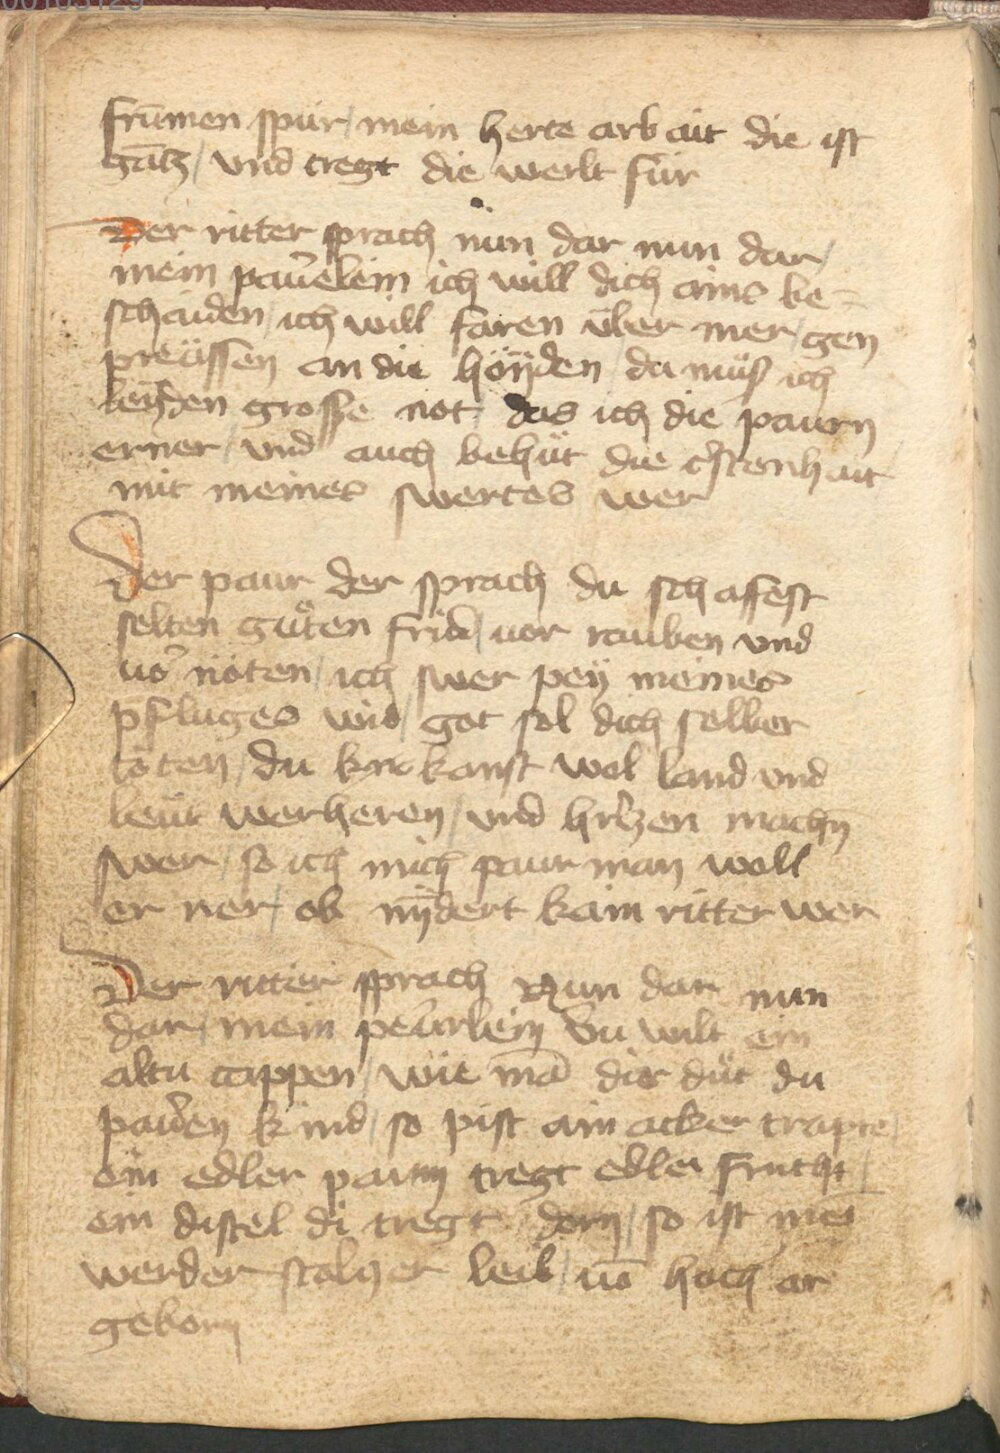 00103129
frúmen spür / mein herte arbait die ist
gātz / vnd tregt die werlt für
Der ritter sprach nun dar nun dar /
mein paüelein ich will dich ains be =
schaiden / ich will faren über mer / gen
preüssen an die höyden / da müß ich
leyden grosse not / das ich die paurn
erner / vnd auch behüt die cristenhait
mit meines swertes wer
Der paur der sprach du schaffest
selten guͤten frid / uor rauben vnd
uō nöten / ich swer pey meines
pfluges wid / got sol dich selber
töten / du kanst wol land vnd
leüt werheren / vnd hrtzen machn̄
swer / so ich mich paur man woll
er ner / ob nyndert kain ritter wer
Der ritter sprach Nun dar nun
dar / mein peürlein Du wilt ein
altu cappen / wie mā dir düt du
paüren kind / so pist ain acker trapte /
ein edler paum tregt edlei frucht /
ein distel di tregt dorn / so ist mei
werder stolzer leib / uō hoch ar
geborn